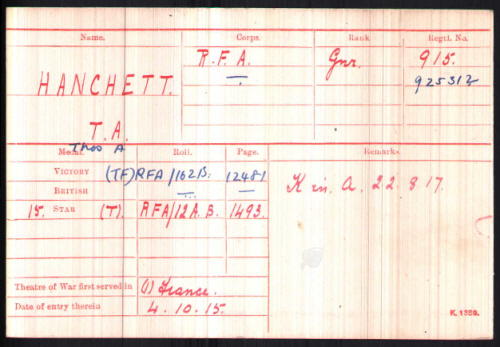 Name. Corps. Rank Regtl. No.
HANCHETT. R.F.A. Gnr. 915.
925312
T.A.
Thos A
Medal. Roll. Page. Remarks.
VICTORY (TF) RFA/162B. 12481 K in. A. 22.8.17.
BRITISH
15. STAR (T). RFA/12A.B. 1493.
Theatre of War first served in (1) France.
Date of entry therein 4.10.15.
K. 1380.